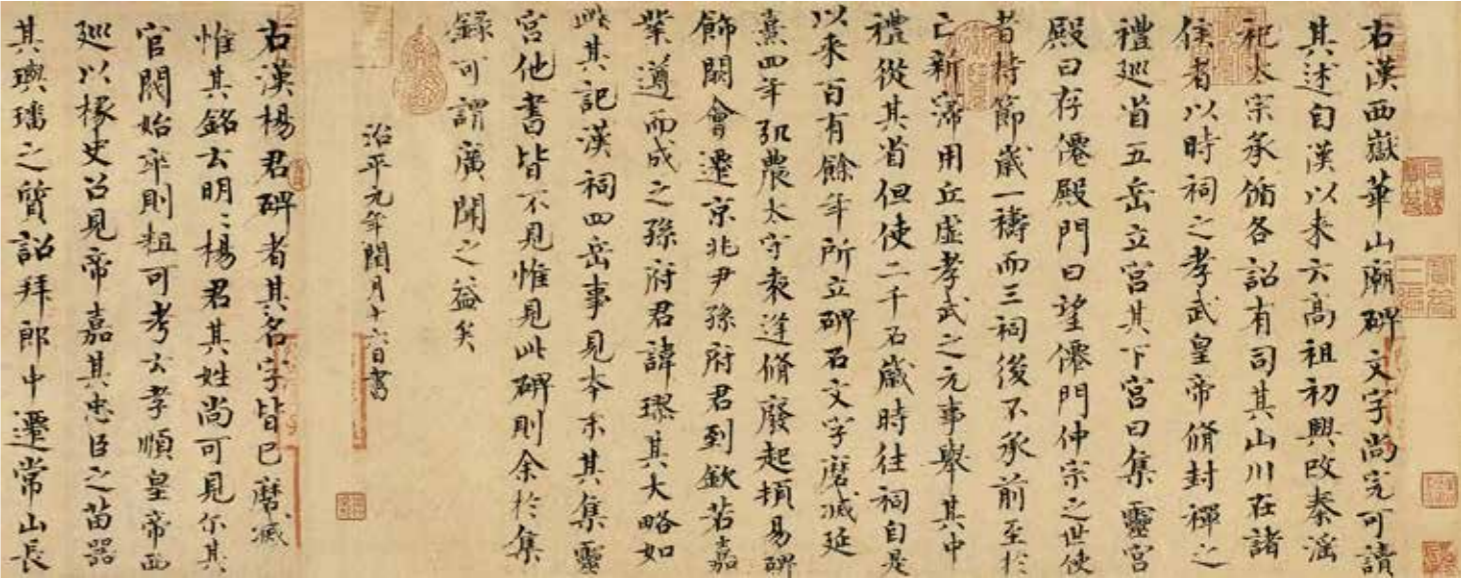 右漢西嶽華山廟碑文字尚完可讀
其述自漢以來云高祖初興改秦淫
祀太宗承循各詔有司其山川在諸
侯者以時祠之孝武皇帝脩封禪之
禮巡省五岳立宮其下宮曰集靈宮
殿曰存僊殿門曰望僊門仲宗之世使
者持節歲一禱而三祠後不承前至於
亡新寖用丘虛孝武之元事舉其中
禮從其省但使二千石歲時往祠自是
以來百有餘年所立碑石文字磨滅延
熹四年弘農太守袁逢脩廢起頓易碑
飾闕會遷京兆尹孫府君到欽若嘉
業遵而成之孫府君諱璆其大略如
此其記漢祠四岳事見本末其集靈
宮他書皆不見惟見此碑則余於集
錄可謂廣聞之益矣
治平元年閏月十六日書
右漢楊君碑者其名字皆已磨滅
惟其銘云明〻楊君其姓尚可見尔其
官閥始卒則粗可考云孝順皇帝西
巡以掾史召見帝嘉其忠臣之苗器
其璵璠之質詔拜郎中遷常山長